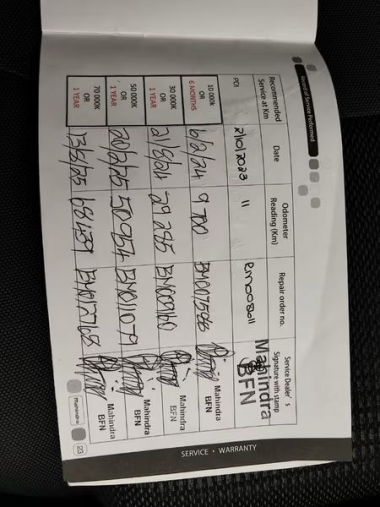 Record of Service Performed
Recommended Service at Km Date Odometer Reading (Km) Repair order no. Service Dealer's Signature with stamp
PDI 2/10/2023 11 RM008011 Mahindra BFN
10 000K OR 6 MONTHS 6/2/24 9 700 Mahindra BFN
30 000K OR 1 YEAR 2/8/24 29 285 Mahindra BFN
50 000K OR 1 YEAR 20/2/25 50 954 BN011071 Mahindra BFN
70 000K OR 1 YEAR 13/8/25 68 439 BN017768 Mahindra BFN
mahindra
23
SERVICE • WARRANTY